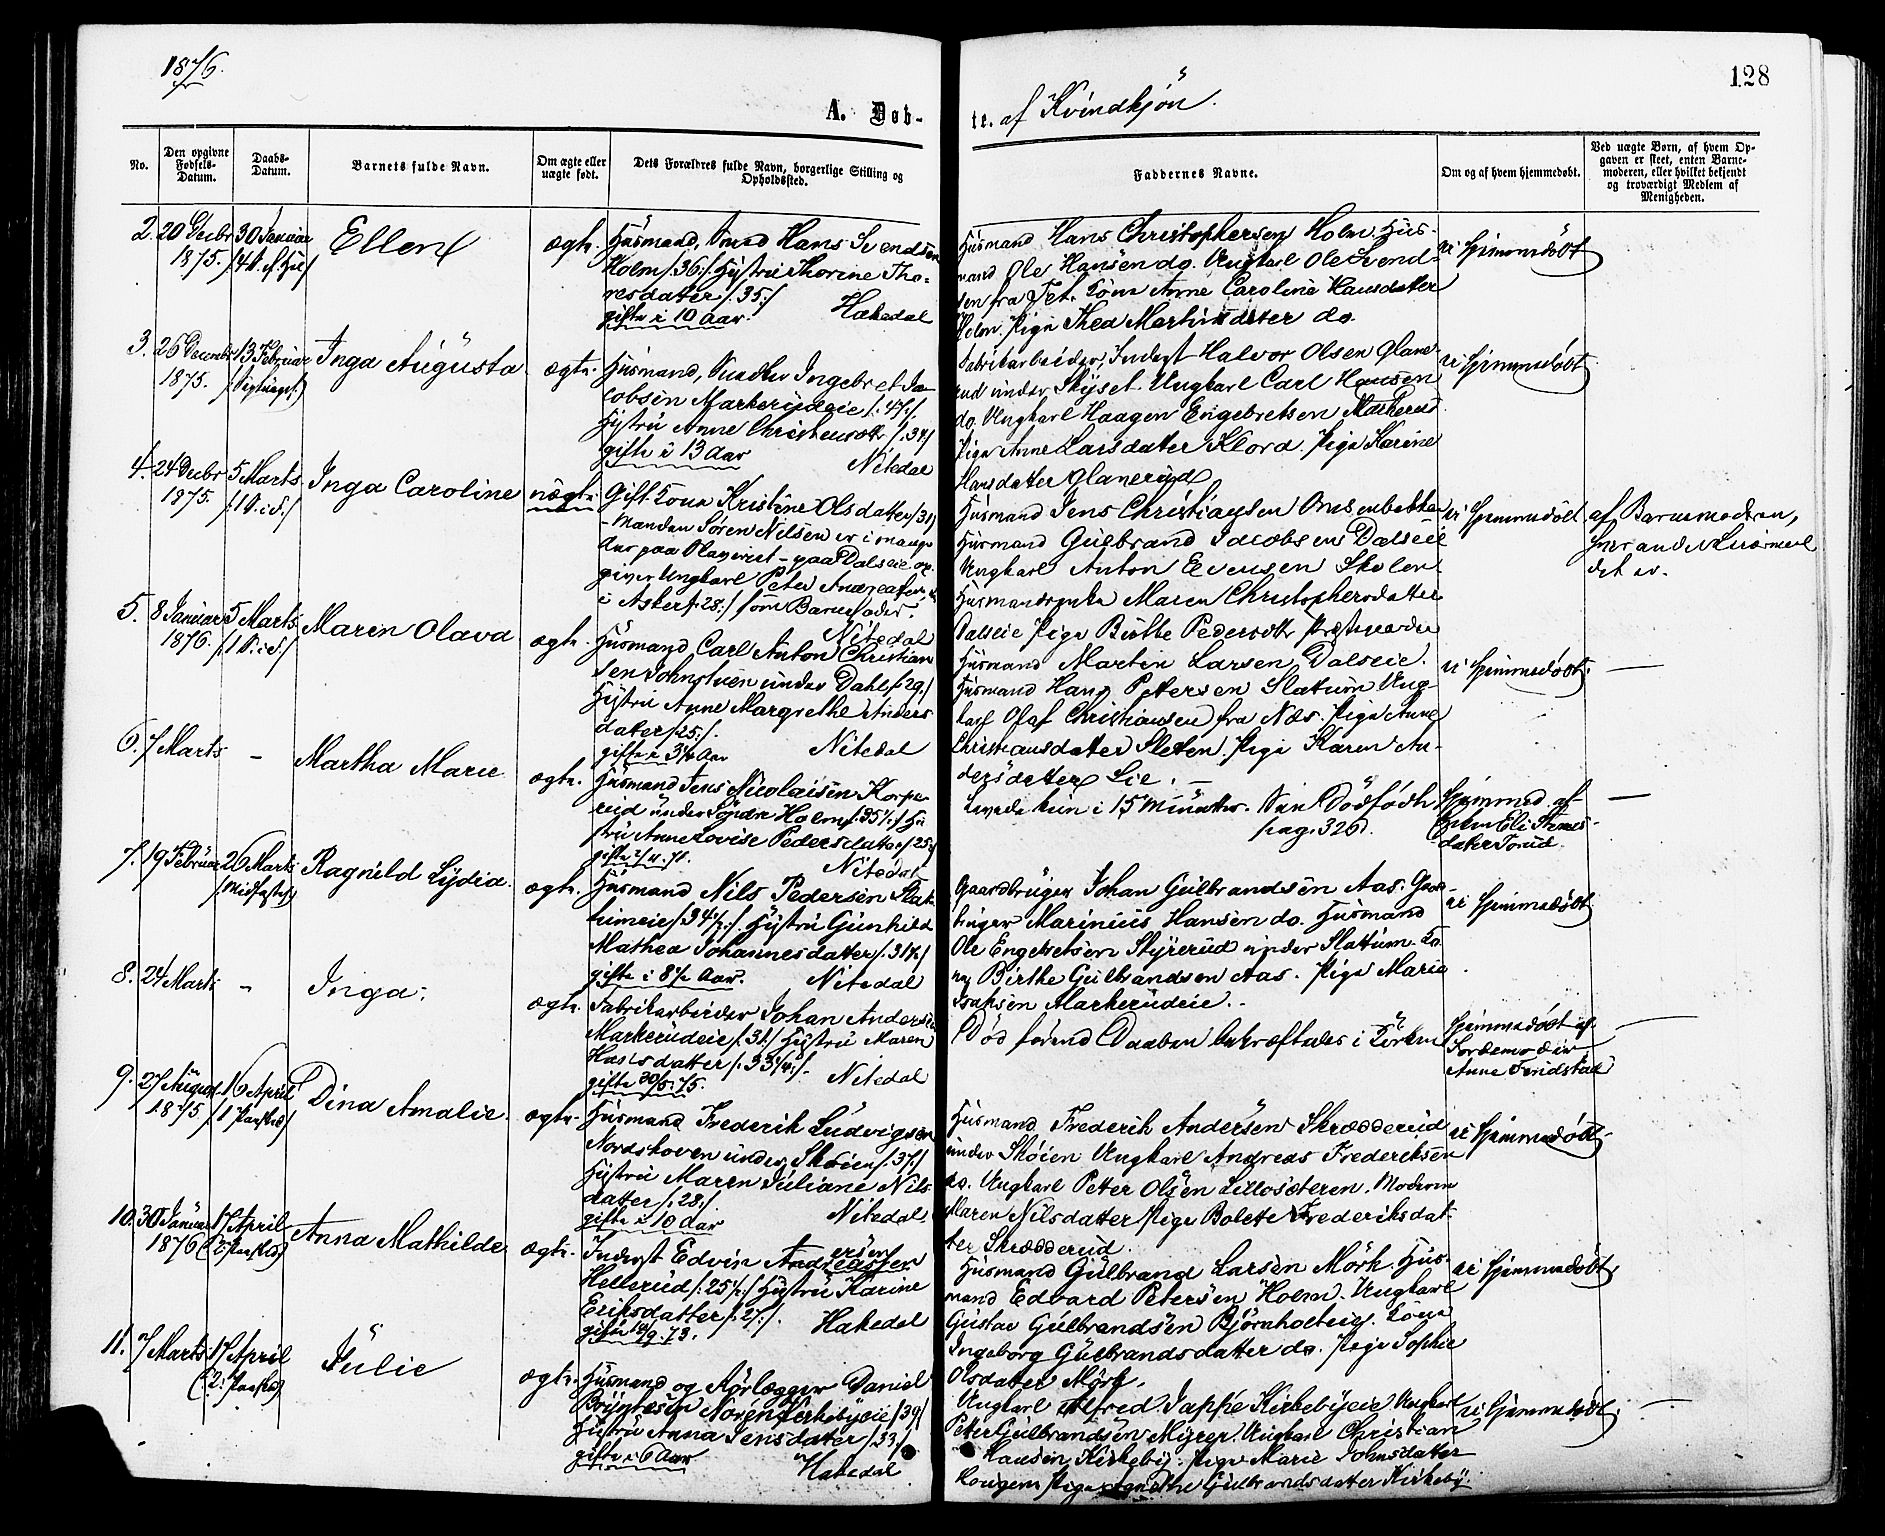 1876.
128
A. Døb-
te. af Kvindkjön.
No.
Den opgivne Fødsels-Datum.
Daabs-Datum.
Barnets fulde Navn.
Om ægte eller uægte født.
Dets Forældres fulde Navn, borgerlige Stilling og Opholdssted.
Faddernes Navne.
Om og af hvem hjemmedøbt.
Ved uægte Børn, af hvem Opgaven er skeet, enten Barnemoderen, eller hvilket bekjendt og troværdigt Medlem af Menigheden.
2. 20 Decbr 1875.
30 Januar
Ellen
ægte.
Husmand, Smed Hans Svendsen
Holm /:36:/ Hustru Thorine Tho-
resdatter /:35:/
gifte i 10 Aar. Hakedal
Husmand Hans Christophersen Holm. Hus-
mand Ole Hansen do. Ungkarl Ole Svend-
sen fra Fet. Kone Anne Caroline Hansdatter
Holm. Pige Thea Martinsdatter do.
ei hjemmedöbt
3. 26 Decembr 1875.
13 Februar
Inga Augusta
ægte.
Husmand, Snedker Ingebret Ja-
cobsen Markerudeie /:47:/.
Hustru Anne Christensdtr /:34:/
gifte i 13 Aar Nitedal
Fabrikarbeider, Inderst Halvor Olsen Glane-
rud under Skyset. Ungkarl Carl Hansen
do. Ungkarl Haagen Engebretsen Markerud.
Pige Anne Larsdatter Kloed. Pige Karine
Hansdatter Glanerud
ei hjemmedöbt
4. 24 Decbr 1875.
5 Marts /:1 S. i F./
Inga Caroline
uægte.
Gift Kone Kristine Olsdatter /31/
- Manden Sören Nilsen er i mange
Aar paa Slaveriet - paa Dalseie op-
giver Ungkarl Peter Andreasen
i Asker /:28:/ som Barnefader.
Nitedal
Husmand Jens Christiansen
Husmand Gulbrand Jacobsen Dalseie
Ungkarl Anton Evensen Skolen.
Husmandspike Maren Christophersdatter
Dalseie Pige Birthe Pedersdtr
ei hjemmedöbt
af Barnemoderen,
5. 8 Januar 1876.
5 Marts /:1 S. i F./
Maren Olava
ægte.
Husmand Carl Anton Christian
sen Johnstuen under Dahl /:29:/
Hustru Anne Margrethe Anders
datter /:25:/.
gifte i 3½ Aar Nitedal
Husmand Martin Larsen Dalseie.
Husmand Hans Petersen Slatum Ung-
karl Olaf Christiansen fra Næs. Pige Anne
Christiansdatter Sletten. Pige Karen An-
dersdatter Lie. —
ei hjemmedöbt. —
6. 7 Marts
-
Martha Marie
ægte.
Husmand Jens Nicolaisen Korpe-
rud under Søndre Holm /:35½:/ Hu
stru Anne Lovise Pedersdatter /25/
gifte Nitedal
Levede kun i 15 Minutter. Sine Dödfödte
pag. 326.
Hjemmed. af
Enken Eli Arnes-
datter Torud. —
7. 19 Februar
26 Marts /Midfaste/
Ragnild Lydia.
ægte.
Husmand Nils Pedersen Slat-
tumeie /:34½:/. Hustru Gunhild
Mathea Johannesdatter /:31½/
gifte i 8½ Aar. Nitedal
Gaardbruger Johan Gulbrandsen Aas. Gaard-
bruger Marinius Hansen do. Husmand
Ole Engebretsen Styrerud under Slattum. Ko-
ne Birthe Gulbrandsen Aas. Pige Maria
Isaksen Markerudeie.
ei hjemmedöbt
8. 24 Marts
-
Inga.
ægte.
Fabrikarbeider Johan Andersen
Markerudeie /:31:/ Hustru Maren
Hansdatter /:33¾:/.
gifte 30/5. 75. Nitedal
Död förend Daaben bekræftedes i Kirken
Hjemmedöbt af
Jordemoder
Anne Fridstad —
9. 27 August 1875
16 April /1 Paaskd/
Dina Amalie.
ægte.
Husmand Frederik Ludvigsen
Nordskoven under Skøien /:37:/
Hustru Maren Juliane Nils
datter /:28:/
gifte i 10 Aar Nitedal
Husmand Frederik Andersen Skrædderud
under Skøien Ungkarl Andreas Frederiksen
do. Ungkarl Peter Olsen Lillosæteren. Moderen
Maren Nilsdatter Pige Bolette Frederiksdat-
ter Skrædderud.
ei hjemmedöbt
10. 30 Januar 1876
17 April (2 Paaskd)
Anna Mathilde.
ægte.
Inderst Edvin Andreassen ersen
Hellerud /:25½:/ Hustru Karine
Eriksdatter /:27:/.
gifte 12/9. 73. Hakedal
Husmand Gulbrand Larsen Mörk. Hus-
mand Edvard Petersen Holm. Ungkarl
Gustav Gulbrandsen Bjørnholteie. Kone
Ingeborg Gulbrandsdatter do. Pige Sophie
Olsdatter Mörk.
ei hjemmedöbt.
11. 7 Marts
17 April (2: Paaskd)
Julie
ægte.
Husmand og Aörlægger Daniel
Bryntesen Noren Kirkebyeie /39/
Hustru Anna Jensdatter /:33/
gifte i 6 Aar Hakedal
Ungkarl Alfred Jappe Kirkebyeie Ungkarl
Peter Gulbrandsen Myrer. Ungkarl Christian
Hansen Kirkeby. Pige Marie Johnsdatter
Haugen. Pige Agnethe Gulbrandsdatter Kirkeby.
ei hjemmedöbt. —